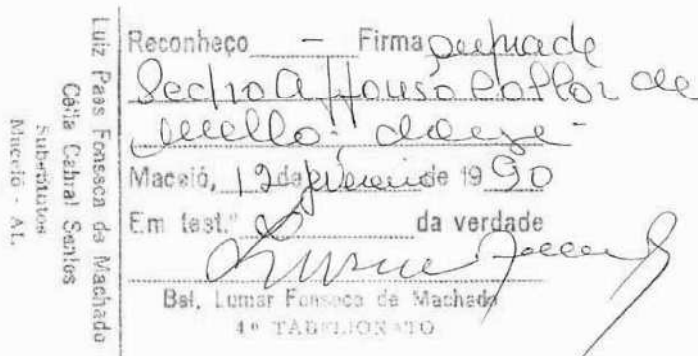 Luiz Paes Fonseca de Machado
Célia Cabral Santos
Substitutos
Maceió - AL.
Reconheço - Firma
Pedro Affonso Collor de
Mello;
Maceió, 12 de fevereiro de 19 90
Em test.º da verdade
Bel. Lumar Fonseca de Machado
4º TABELIONATO